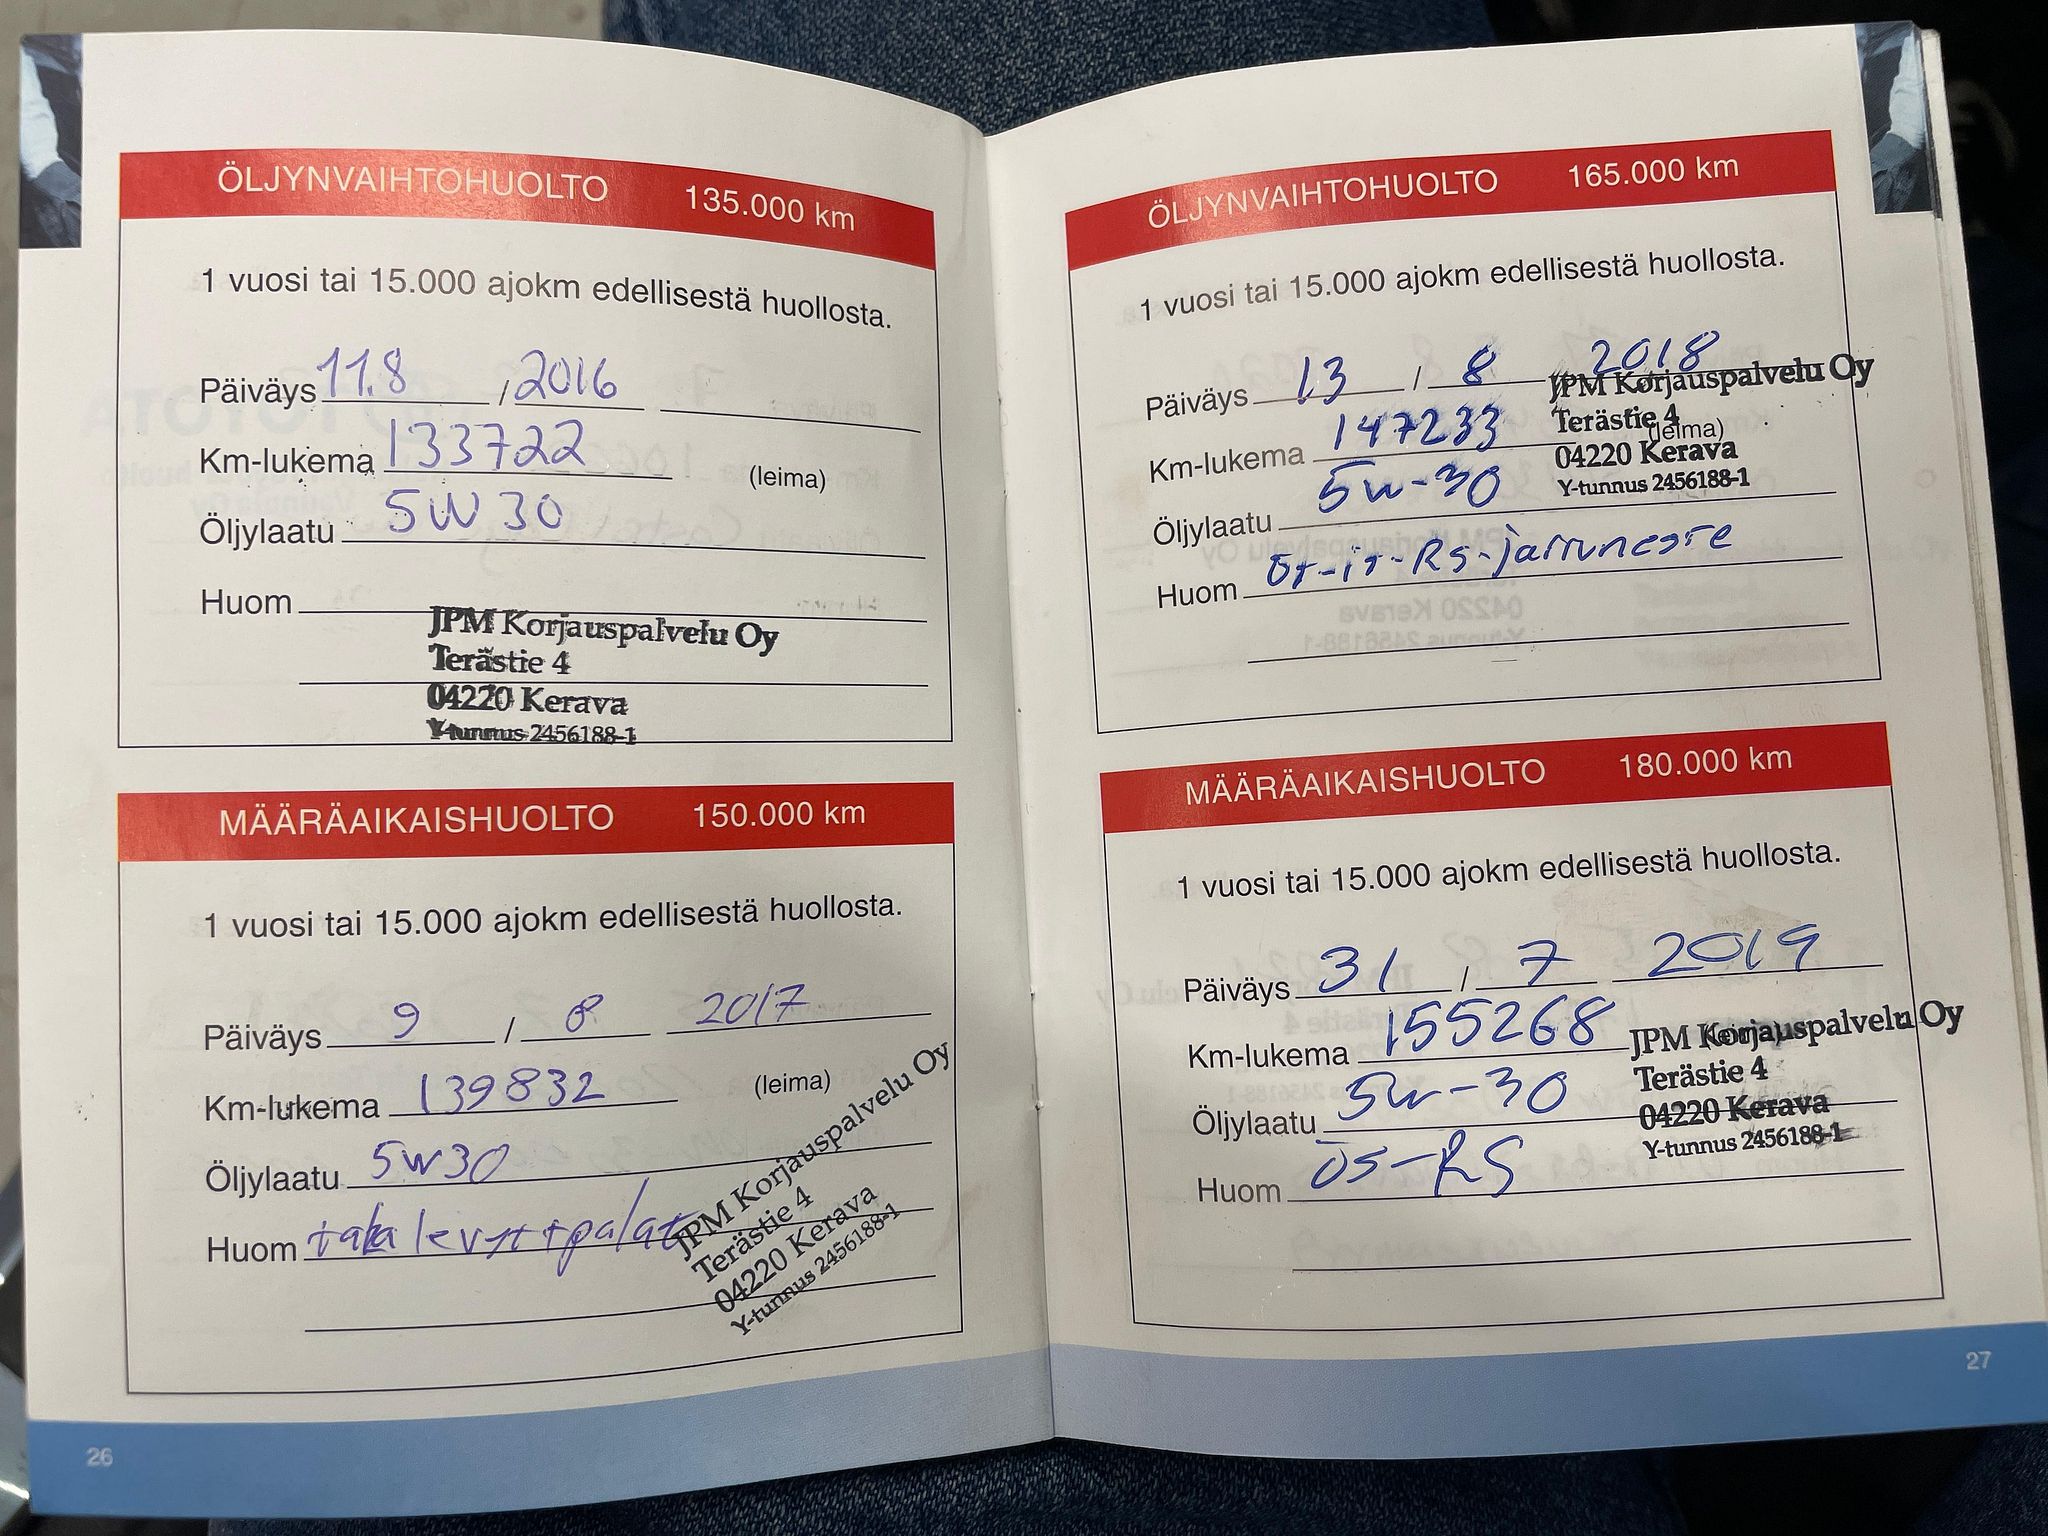 ÖLJYNVAIHTOHUOLTO 135.000 km
1 vuosi tai 15.000 ajokm edellisestä huollosta.
Päiväys 11.8 / 2016
Km-lukema 133722 (leima)
Öljylaatu 5W30
Huom
JPM Korjauspalvelu Oy
Terästie 4
04220 Kerava
Y-tunnus 2456188-1
MÄÄRÄAIKAISHUOLTO 150.000 km
1 vuosi tai 15.000 ajokm edellisestä huollosta.
Päiväys 9 / 8 2017
Km-lukema 139832 (leima)
Öljylaatu 5W30
Huom taka levyt+palat
JPM Korjauspalvelu Oy
Terästie 4
04220 Kerava
Y-tunnus 2456188-1
26
ÖLJYNVAIHTOHUOLTO 165.000 km
1 vuosi tai 15.000 ajokm edellisestä huollosta.
Päiväys 13 / 8 2018
Km-lukema 147233 (leima)
Öljylaatu 5w-30
Huom RS-jarruneste
JPM Korjauspalvelu Oy
Terästie 4
04220 Kerava
Y-tunnus 2456188-1
MÄÄRÄAIKAISHUOLTO 180.000 km
1 vuosi tai 15.000 ajokm edellisestä huollosta.
Päiväys 31 / 7 2019
Km-lukema 155268
Öljylaatu 5w-30
Huom ös-RS
JPM Korjauspalvelu Oy
Terästie 4
04220 Kerava
Y-tunnus 2456188-1
27